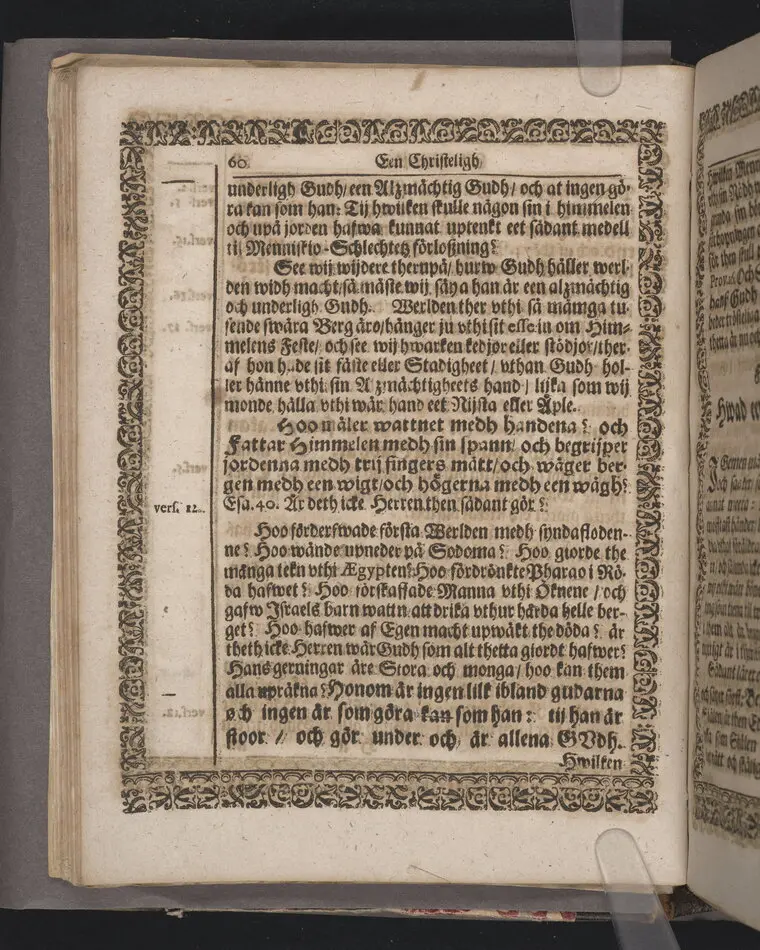 60. Een Christeligh
underligh Gudh/ een Alzmächtig Gudh/ och at ingen gö-
ra kan som han: Tij hwilken skulle någon sin i himmelen
och upå jorden hafwa kunnat uptenkt eet sådant medell
til Menniskio-Schlechtetz förloßning?
See wij wijdere therupå/ hurw Gudh håller werl-
den widh macht/ så måste wij säya han är een alzmächtig
och underligh Gudh. Werlden ther vthi så många tu-
sende swåra Berg äro/ hänger ju vthi sit esse in om Him-
melens Feste/ och see wij hwarken kedjor eller stödjor/ ther-
af hon hade sit fäste eller Stadigheet/ vthan Gudh hol-
ler hänne vthi sin Alzmächtigheets hand/ lijka som wij
monde hålla vthi wår hand eet Nijsta eller Äple.
Hoo mäler wattnet medh handena? och
Fattar Himmelen medh sin spann/ och begrijper
jordenna medh trij fingers mått/ och wäger ber-
gen medh een wigt/ och högerna medh een wågh?
vers. 12. Esa. 40. Är deth icke Herren then sådant gör?
Hoo förderfwade första Werlden medh syndafloden-
ne? Hoo wände upneder på Sodoma? Hoo giorde the
många tekn vthi Ægypten? Hoo fördrönkte Pharao i Rö-
da hafwet? Hoo förskaffade Manna vthi Öknene/ och
gafw Israels barn wattn att drika vthur hårda helle ber-
get? Hoo hafwer af Egen macht upwäkt the döda? är
theth icke Herren wår Gudh som alt thetta giordt hafwer?
Hans gerningar äre Stora och monga/ hoo kan them
alla upräkna? Honom är ingen lik ibland gudarna
och ingen är som göra kan som han: tij han är
stoor/ och gör under och är allena GUdh.
Hwilken